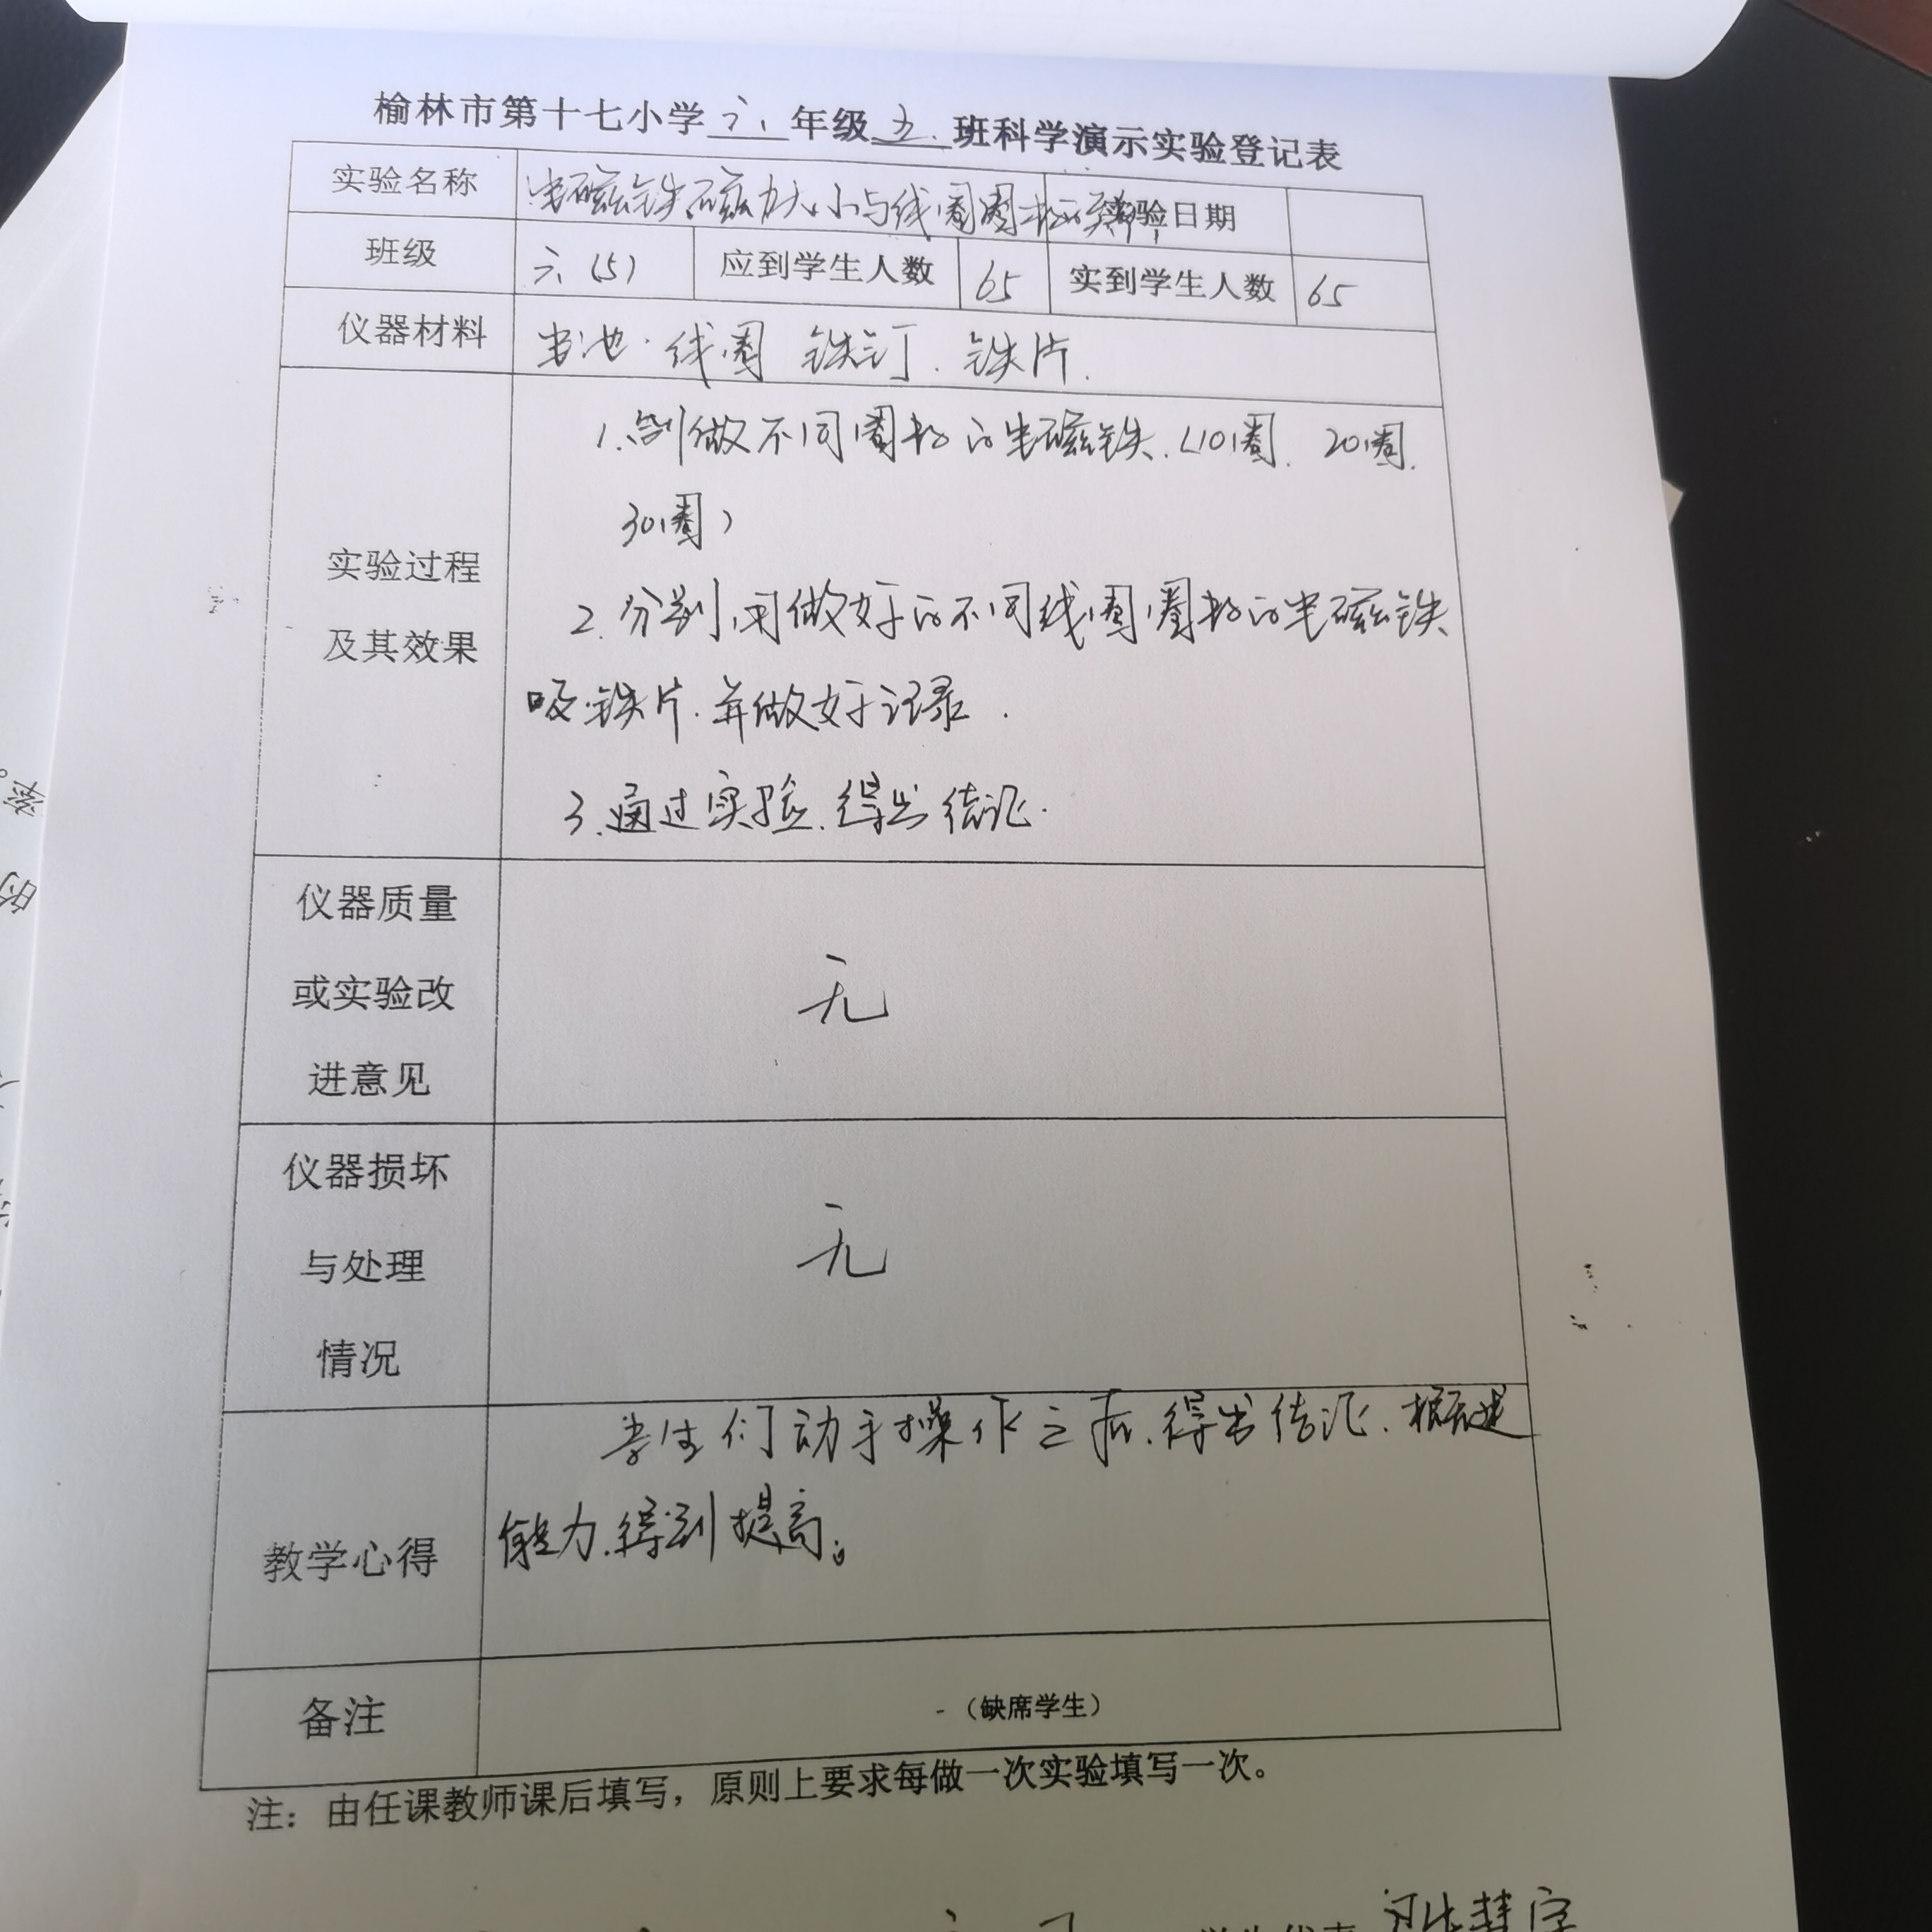 榆林市第十七小学六年级五班科学演示实验登记表
实验名称 电磁铁磁力大小与线圈圈数的关系 实验日期
班级 六(5) 应到学生人数 65 实到学生人数 65
仪器材料 电池.线圈 铁钉.铁片.
1.制做不同圈数的电磁铁.(10圈.20圈.
30圈)
实验过程
及其效果
2.分别用做好的不同线圈圈数的电磁铁
吸铁片.并做好记录.
3.通过实验.得出结论.
仪器质量
或实验改
进意见
无
仪器损坏
与处理
情况
无
学生们动手操作之后.得出结论.概述
能力.得到提高。
教学心得
备注 (缺席学生)
注:由任课教师课后填写,原则上要求每做一次实验填写一次。
学生代表